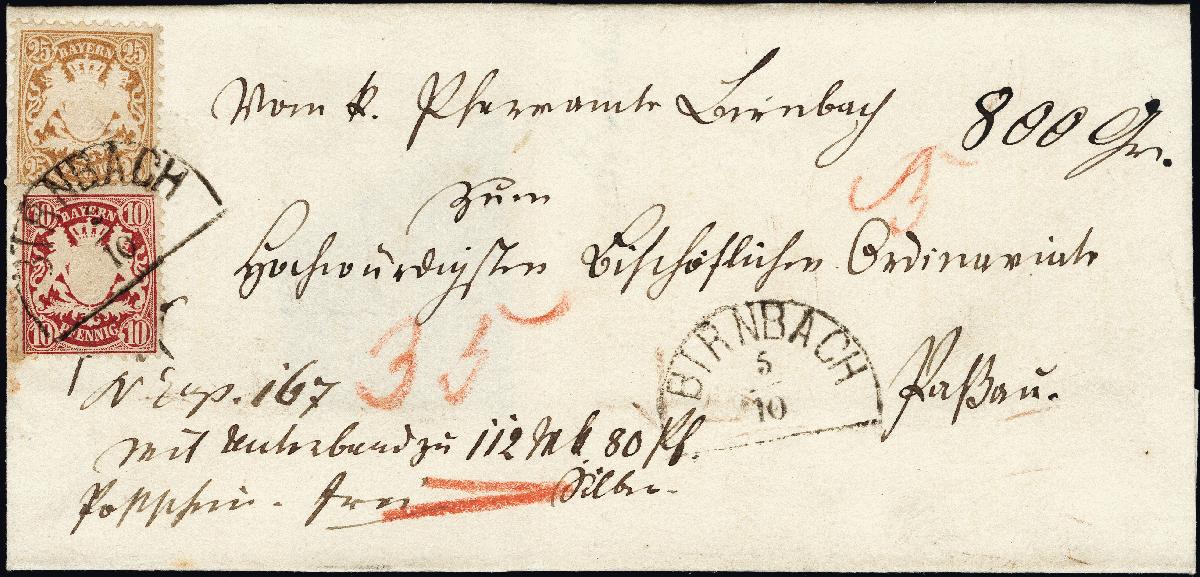 25 BAYERN 25
25
BIRNBACH
5
10
10 BAYERN 10
10 PFENNIG 10
Vom k. Pfarramte Birnbach
800 Gr.
zum
Hochwürdigsten Bischöflichen Ordinariate
35
BIRNBACH
5
10
Paßau.
N Exp. 167
mit Unterband zu 112 Mk 80 Pf.
Postschein. frei Silber.